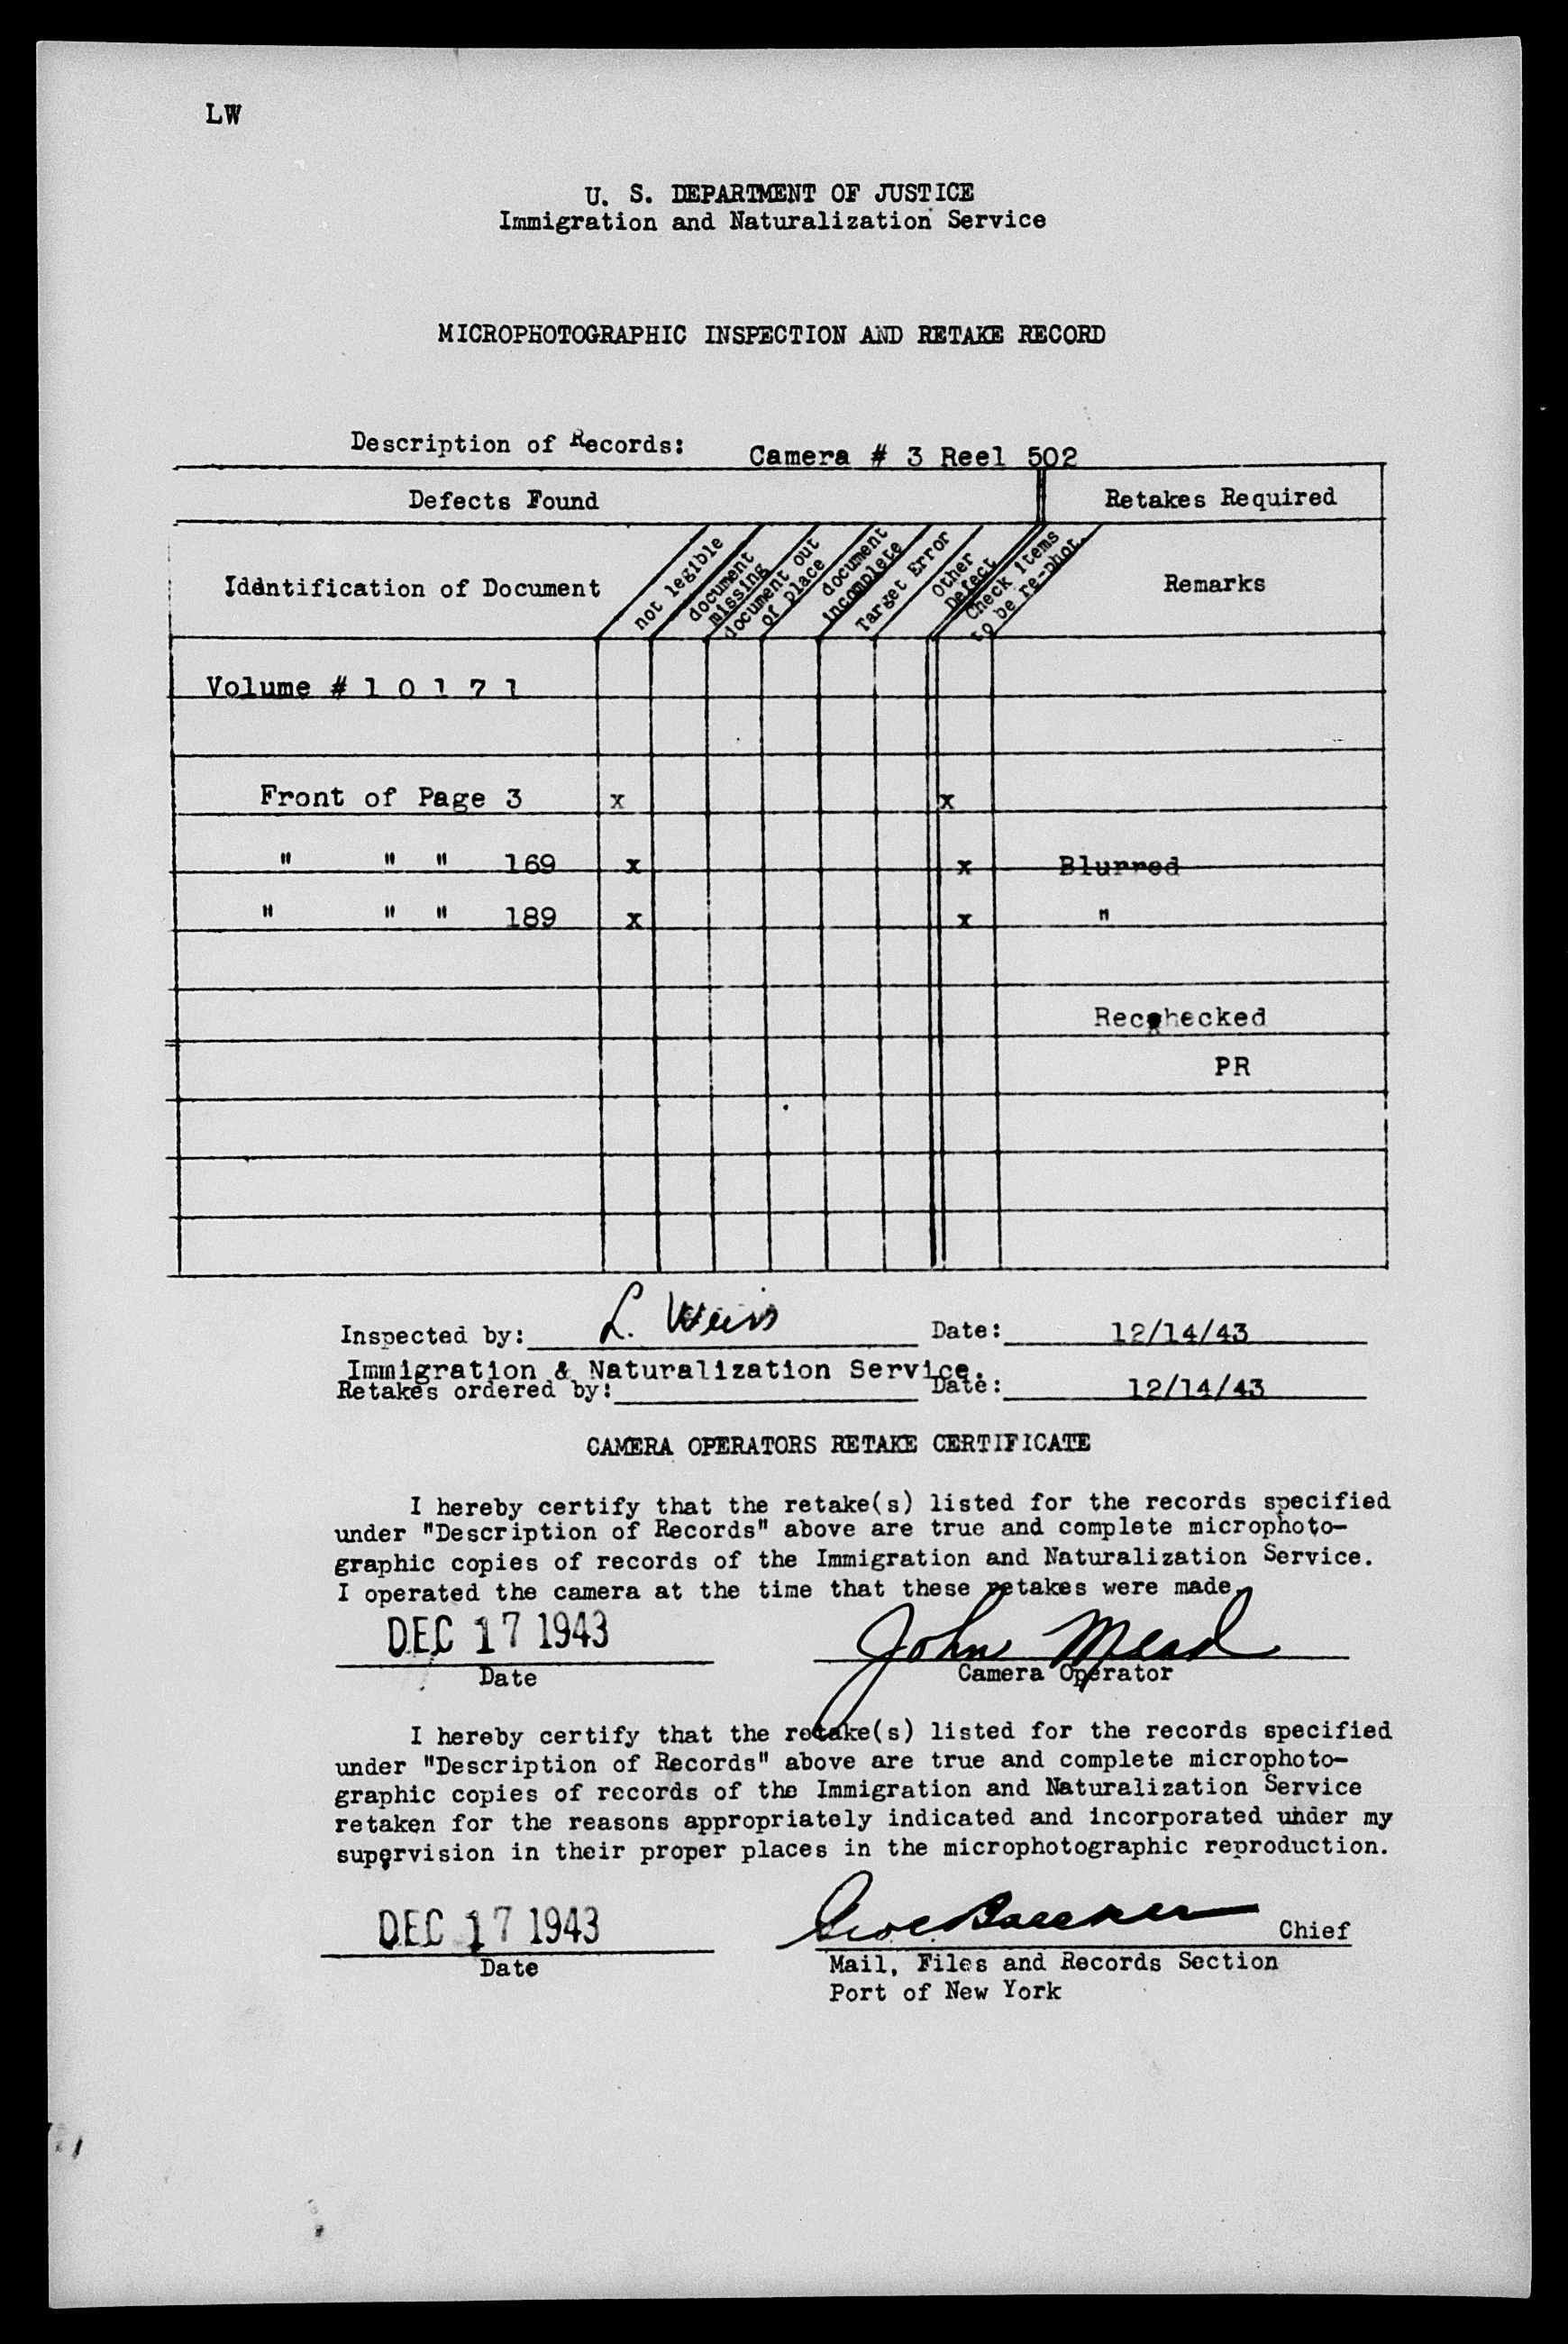 LW
U. S. DEPARTMENT OF JUSTICE
Immigration and Naturalization Service
MICROPHOTOGRAPHIC INSPECTION AND RETAKE RECORD
Description of Records: Camera # 3 Reel 502
Defects Found Retakes Required
Identification of Document
not legible
document missing
document out of place
document incomplete
Target Error
Other Defect
Check items to be re-phot.
Remarks
Volume # 1 0 1 7 1
Front of Page 3 x x
" " " 169 x x Blurred
" " " 189 x x "
Recchecked
PR
Inspected by: L. Weiss Date: 12/14/43
Immigration & Naturalization Service.
Retakes ordered by: Date: 12/14/43
CAMERA OPERATORS RETAKE CERTIFICATE
I hereby certify that the retake(s) listed for the records specified
under "Description of Records" above are true and complete microphoto-
graphic copies of records of the Immigration and Naturalization Service.
I operated the camera at the time that these retakes were made.
DEC 17 1943 John Mead
Date Camera Operator
I hereby certify that the retake(s) listed for the records specified
under "Description of Records" above are true and complete microphoto-
graphic copies of records of the Immigration and Naturalization Service
retaken for the reasons appropriately indicated and incorporated under my
supervision in their proper places in the microphotographic reproduction.
DEC 17 1943 Chief
Date Mail, Files and Records Section
Port of New York